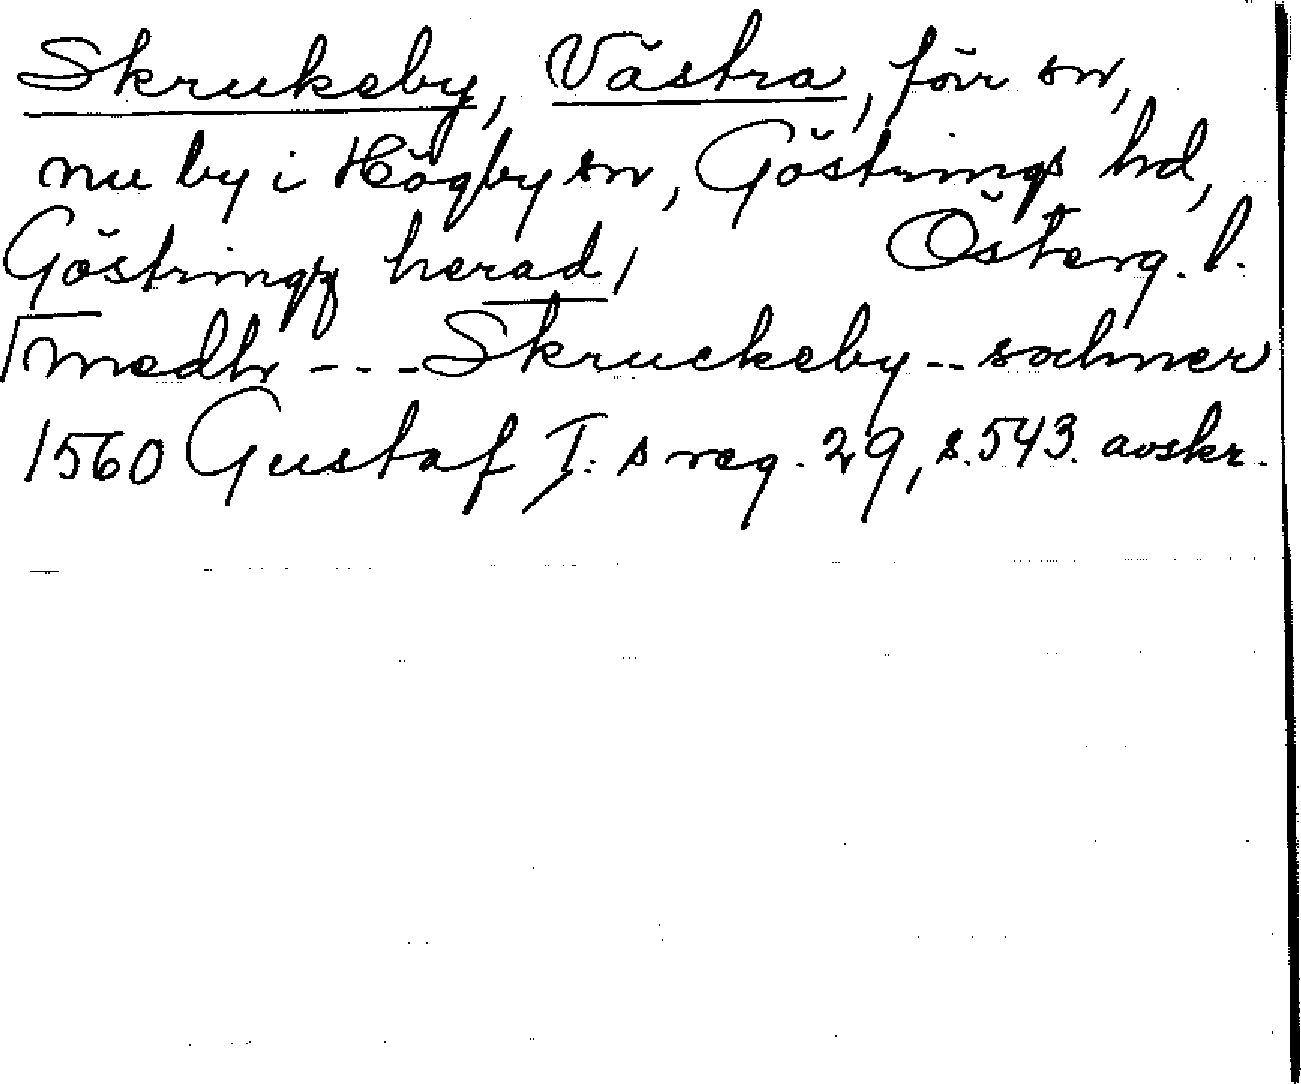 Skrukeby, Västra, förr sn,
nu by i Högby sn, Göstrings hd,
Österg. l.
Göstringz herad,
medh - - - Skruckeby - - sochner
1560 Gustaf I:s reg. 29, s. 543. avskr.